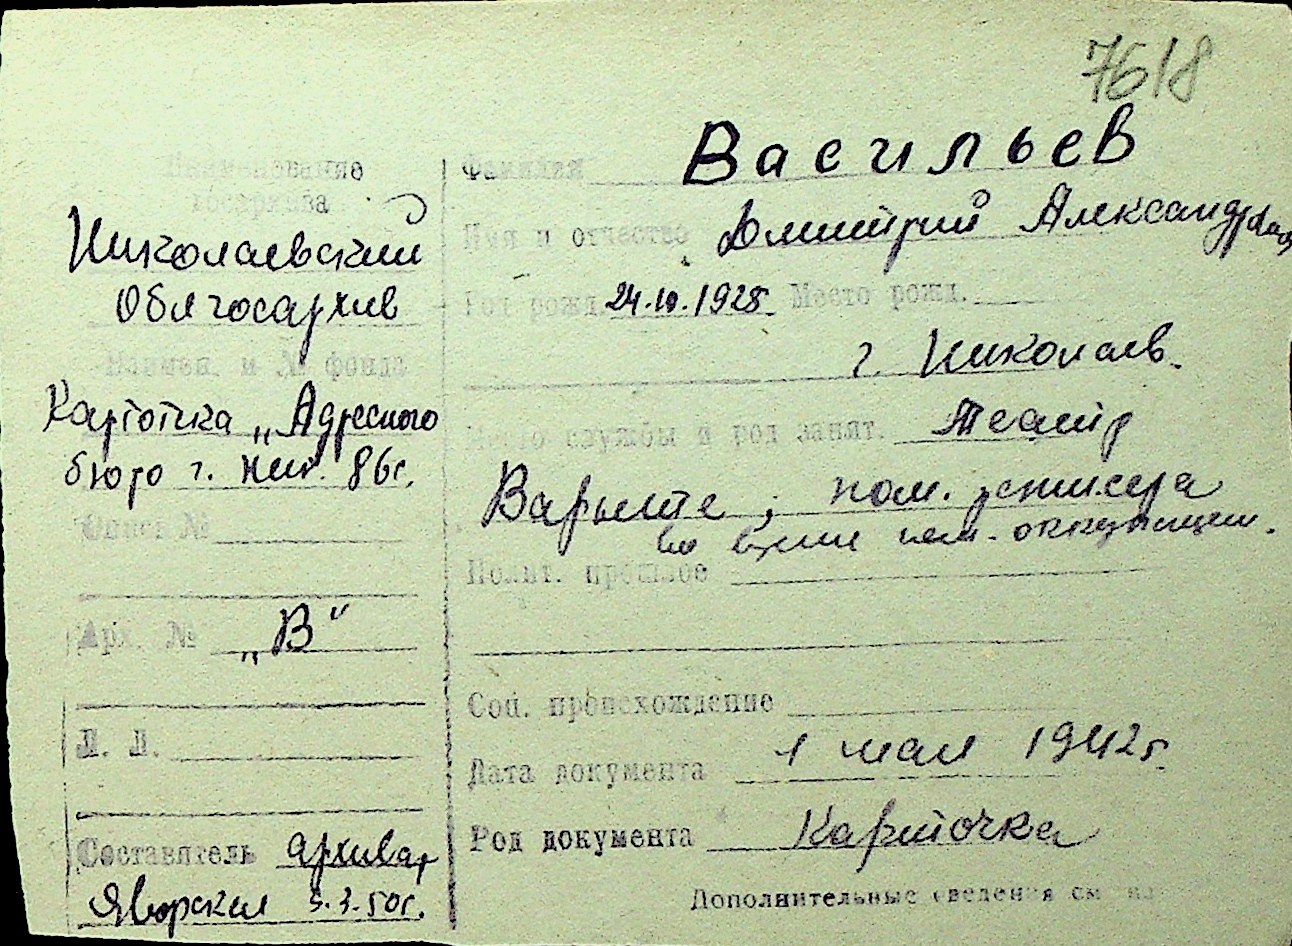 7618
Наименование
госархива
Николаевский
Облгосархив
Наимен. и № фонда
Картотека „Адресного
бюро г. Ник. 86г.
Опись №
Арх. № „В“
Л. Л.
Составитель архивар
Яворская 5.3.50г.
Фамилия Васильев
Имя и отчество Дмитрий Александров
Год рожд. 24.10.1925. Место рожд.
г. Николаев.
Место службы и род занят. Театр
Варьете, пом. режисера
во время нем. оккупации.
Полит. прошлое
Соц. происхождение
Дата документа 1 мая 1942г.
Род документа Карточка
Дополнительные сведения см